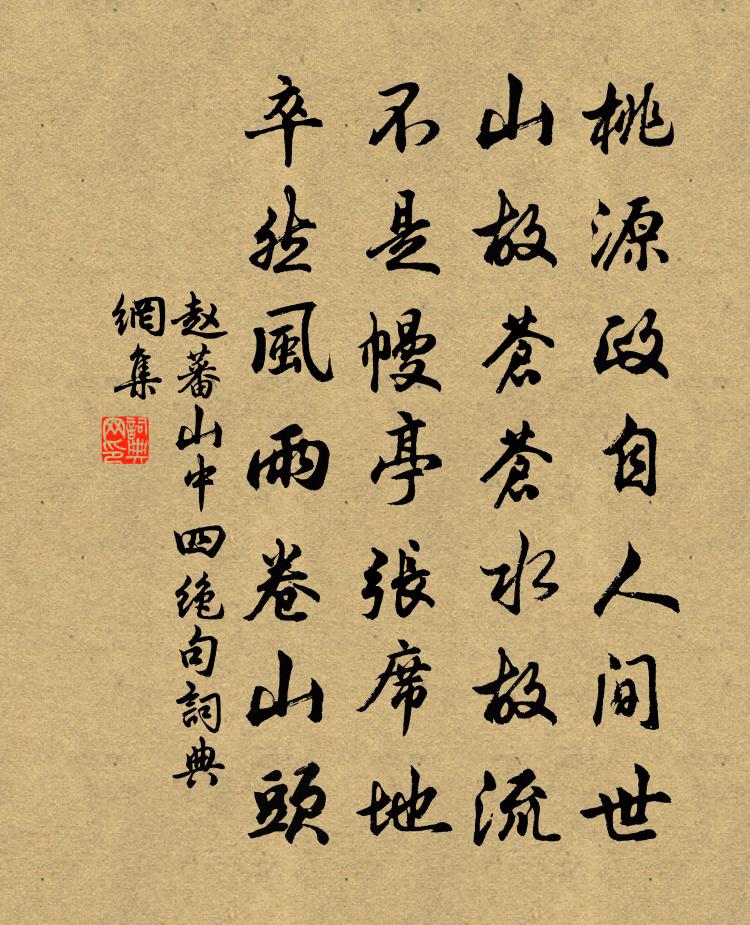 桃源政自人间世
山故蒼蒼水故流
不是幔亭張席地
卒然風雨卷山頭
赵蕃山中四絶句詞典
網集
詞典
网印